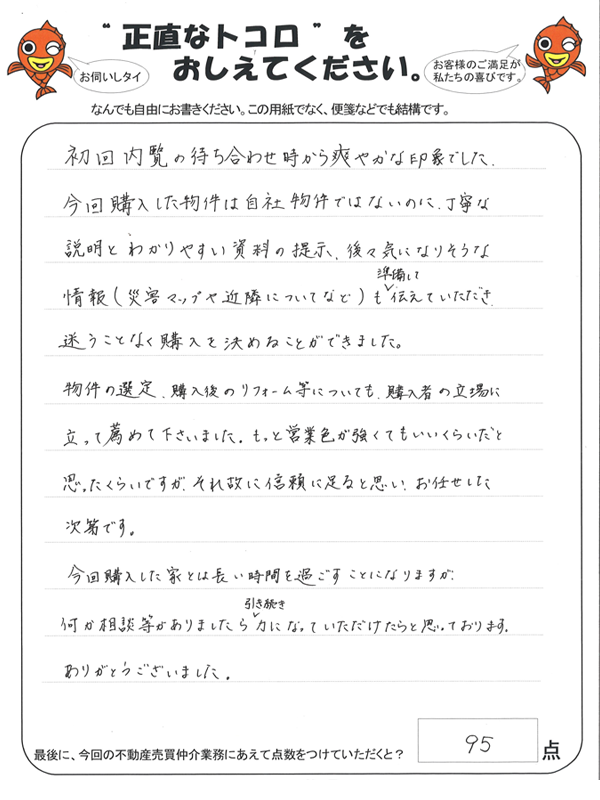 “正直なトコロ”を
おしえてください。
お伺いしタイ
お客様のご満足が
私たちの喜びです。
なんでも自由にお書きください。この用紙でなく、便箋などでも結構です。
初回内覧の待ち合わせ時から爽やかな印象でした。
今回購入した物件は自社物件ではないのに、丁寧な
説明とわかりやすい資料の提示、後々気になりそうな
準備して
情報(災害マップや近隣についてなど)も伝えていただき、
迷うことなく購入を決めることができました。
物件の選定、購入後のリフォーム等についても、購入者の立場に
立って薦めて下さいました。もっと営業色が強くてもいいくらいだと
思ったくらいですが、それ故に信頼に足ると思い、お任せした
次第です。
今回購入した家とは長い時間を過ごすことになりますが、
引き続き
何か相談等がありましたら力になっていただけたらと思っております。
ありがとうございました。
最後に、今回の不動産売買仲介業務にあえて点数をつけていただくと?
95 点